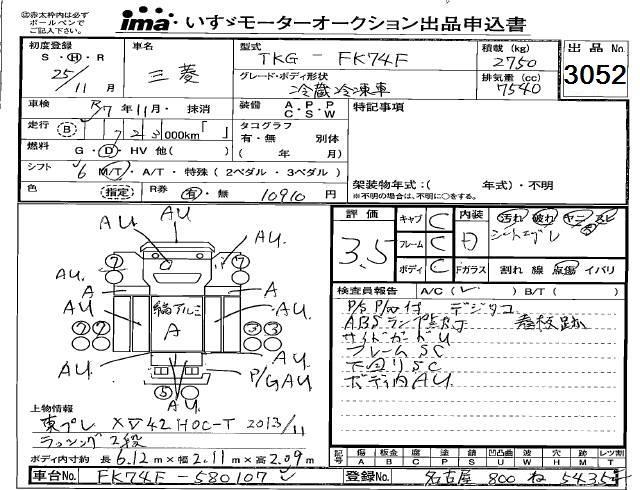 ㊟赤太枠内は必ず
ボールペンで
ご記入ください。
ima いすゞモーターオークション出品申込書
初度登録
S・H・R
25/11月
車名
三菱
型式
TKG - FK74F
グレード・ボディ形状
冷蔵冷凍車
積載(kg)
2750
排気量(cc)
7540
出品No.
3052
車検
R7年11月・抹消
装備
A・P・P
C・S・W
特記事項
走行
B 723,000km「 」
タコグラフ
有・無 別体
( 年 月)
燃料
G・D・HV 他( )
シフト
6 M/T・A/T・特殊(2ペダル・3ペダル)
色
指定
R券
有・無 10910円
架装物年式:( 年式)・不明
※不明の場合は、不明に○をする。
AU
AU.
AU.
AU.
A
A
縞アルミ
A
AU
AU.
AU
AU.
P/G AU
AU
評価
3.5
キャブ C
フレーム C
ボディ C
内装 D
汚れ 破れ ヤニ スレ
Fガラス 割れ 線 点傷 イバリ
検査員報告 A/C( ) B/T( )
P/S P/W付 デジタコ
ABSランプ 看板跡
サイドガードU
フレームSC
下回りSC
ボディ内AU.
上物情報
東プレ XV42HOC-T 2013/11
ラッシング2段
ボディ内寸約 長6.12m×幅2.11m×高2.09m
記号 傷A 板金B 腐C 塗P 錆S 凹凸曲U 波W 穴H 跡M レンズ割T
車台No. FK74F - 580107
登録No. 名古屋 800 ね 5435号